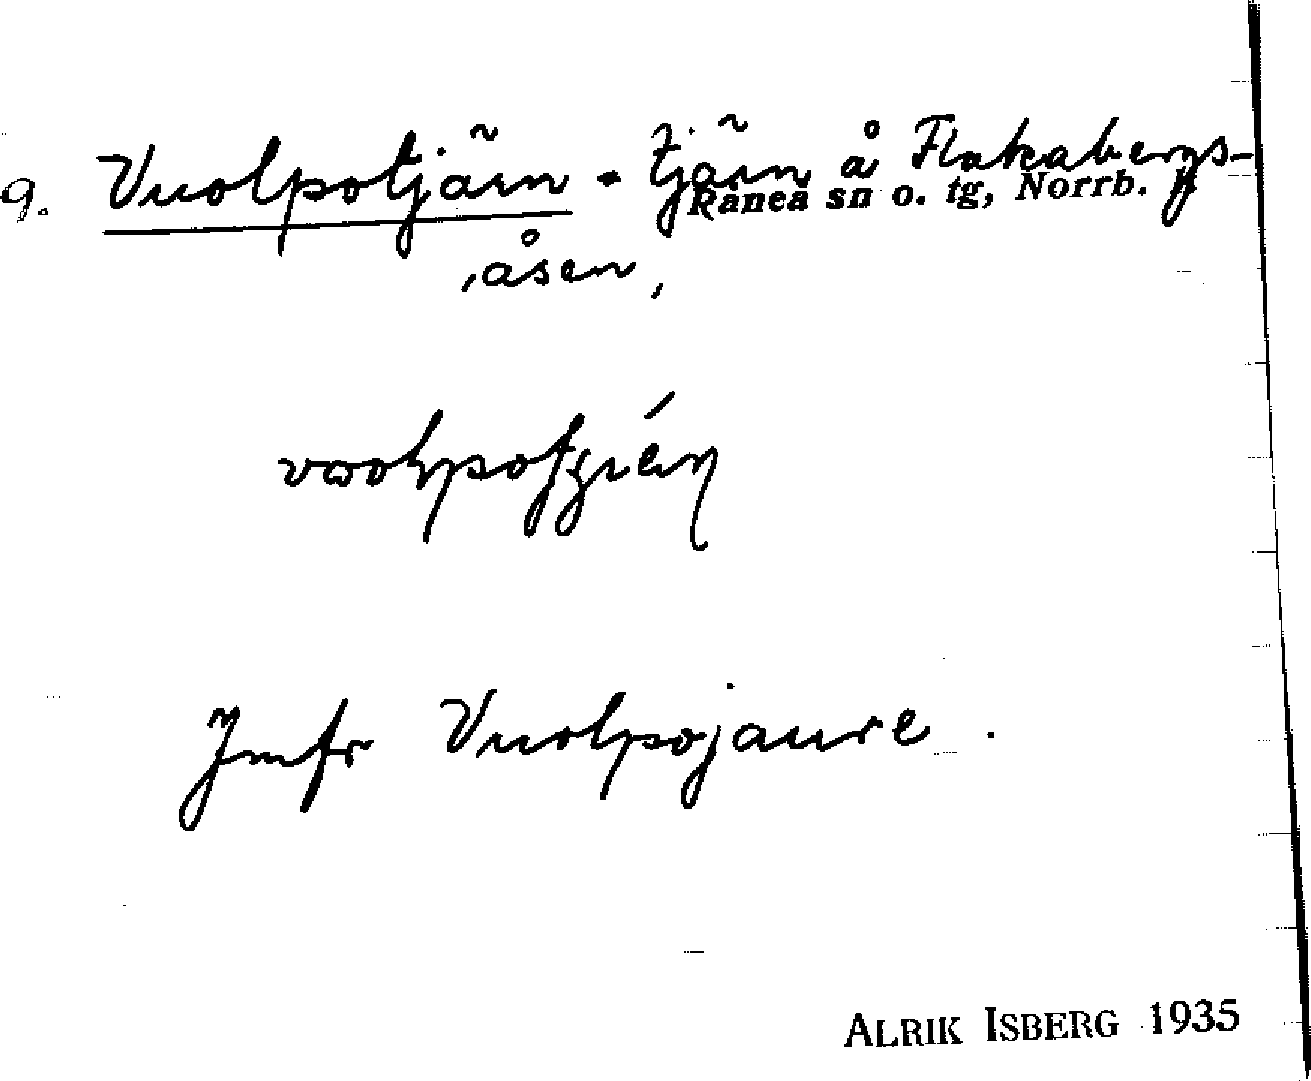 9. Vuolpotjärn - tjärn å Flakabergs-
Råneå sn o. tg, Norrb. l.
åsen,
Jmfr Vuolpojaure.
ALRIK ISBERG 1935